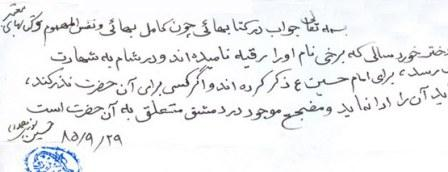 بسمه تعالی جواب در کتابهائی چون کامل بهائی و نفس المهموم و کتابهای معتبر
دختر خردسالی که برخی نام او را رقیه نامیده اند و در شام به شهادت
رسید، برای امام حسین ع ذکر کرده اند و اگر کسی برای آن حضرت نذر کند،
باید آن را ادا نماید و مضجع موجود در دمشق متعلق به آن حضرت است
۸۵/۹/۲۹